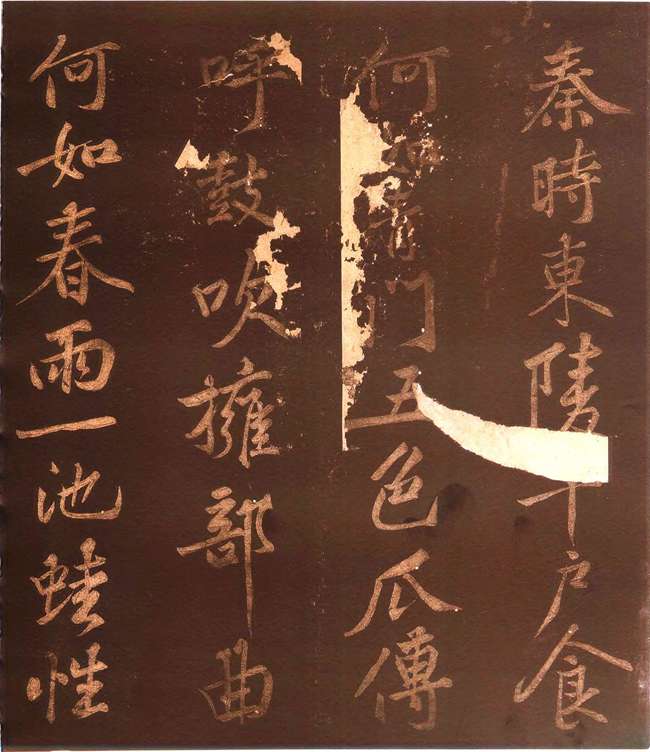 秦時東陵千户食
何如青門五色瓜傳
呼鼓吹擁部曲
何如春雨一池蛙性